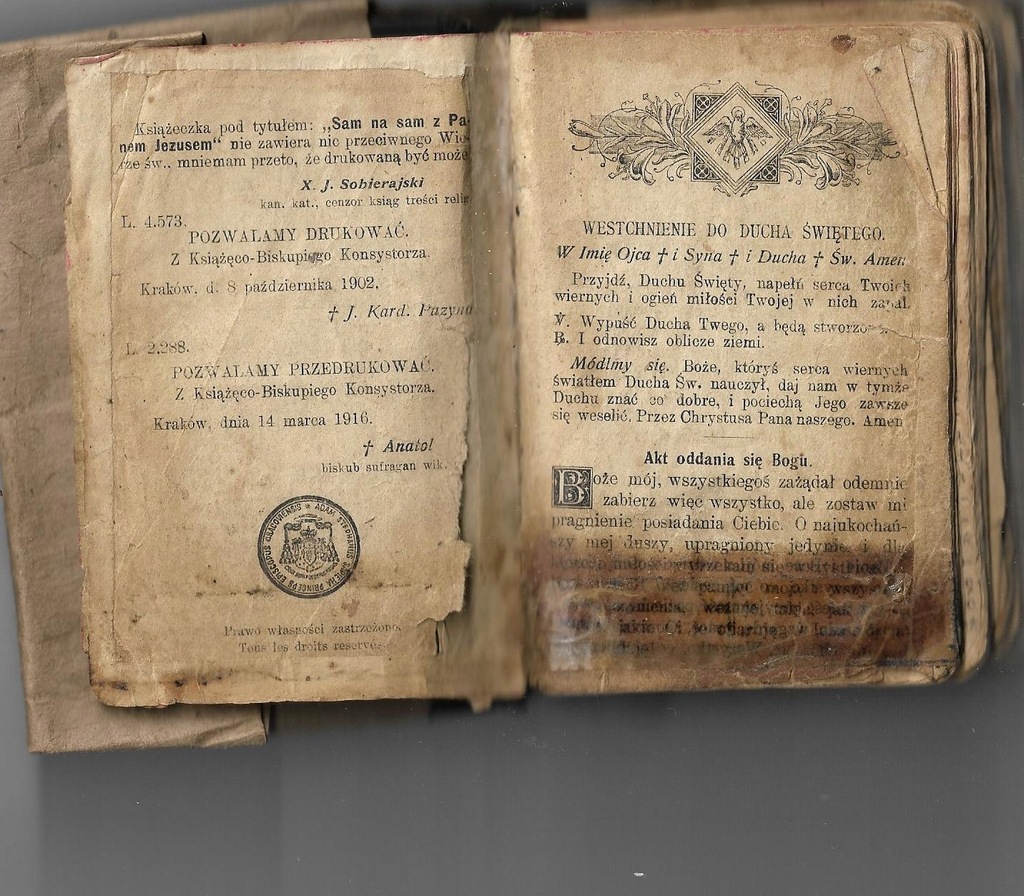 Książeczka pod tytułem: „Sam na sam z Pa-
nem Jezusem“ nie zawiera nic przeciwnego Wie-
rze św., mniemam przeto, że drukowaną być może
X. J. Sobierajski
kan. kat., cenzor ksiąg treści relig
L. 4.573.
POZWALAMY DRUKOWAĆ.
Z Książęco-Biskupiego Konsystorza.
Kraków, d. 8 października 1902.
† J. Kard. Puzyna
L. 2.288.
POZWALAMY PRZEDRUKOWAĆ.
Z Książęco-Biskupiego Konsystorza.
Kraków, dnia 14 marca 1916.
† Anatol
biskub sufragan wik.
ADAM STEPHANUS SAPIEHA PRINCEPS EPISCOPUS CRACOVIENSIS
Prawo własności zastrzeżone.
Tous les droits reservés
WESTCHNIENIE DO DUCHA ŚWIĘTEGO.
W Imię Ojca † i Syna † i Ducha † Św. Amen
Przyjdź, Duchu Święty, napełń serca Twoich
wiernych i ogień miłości Twojej w nich zapal.
V. Wypuść Ducha Twego, a będą stworzo
R. I odnowisz oblicze ziemi.
Módlmy się. Boże, któryś serca wiernych
światłem Ducha Św. nauczył, daj nam w tymże
Duchu znać co dobre, i pociechą Jego zawsze
się weselić. Przez Chrystusa Pana naszego. Amen
Akt oddania się Bogu.
Boże mój, wszystkiegoś zażądał odemnie
zabierz więc wszystko, ale zostaw mi
pragnienie posiadania Ciebie. O najukochań-
szy mej duszy, upragniony jedynie i dla
się wszystkiego